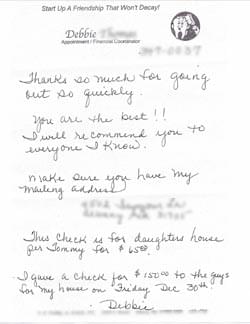 Start Up A Friendship That Won't Decay!
Debbie
Appointment / Financial Coordinator
Thanks so much for going
out so quickly.
You are the best!!
I will recommend you to
everyone I know.
make sure you have my
Maileng address
This check is for daughters house
per Tommy for $ 65.00.
I gave a check for $ 150.00 to the guys
for my house on "Friday Dec 30th."
. Debbie